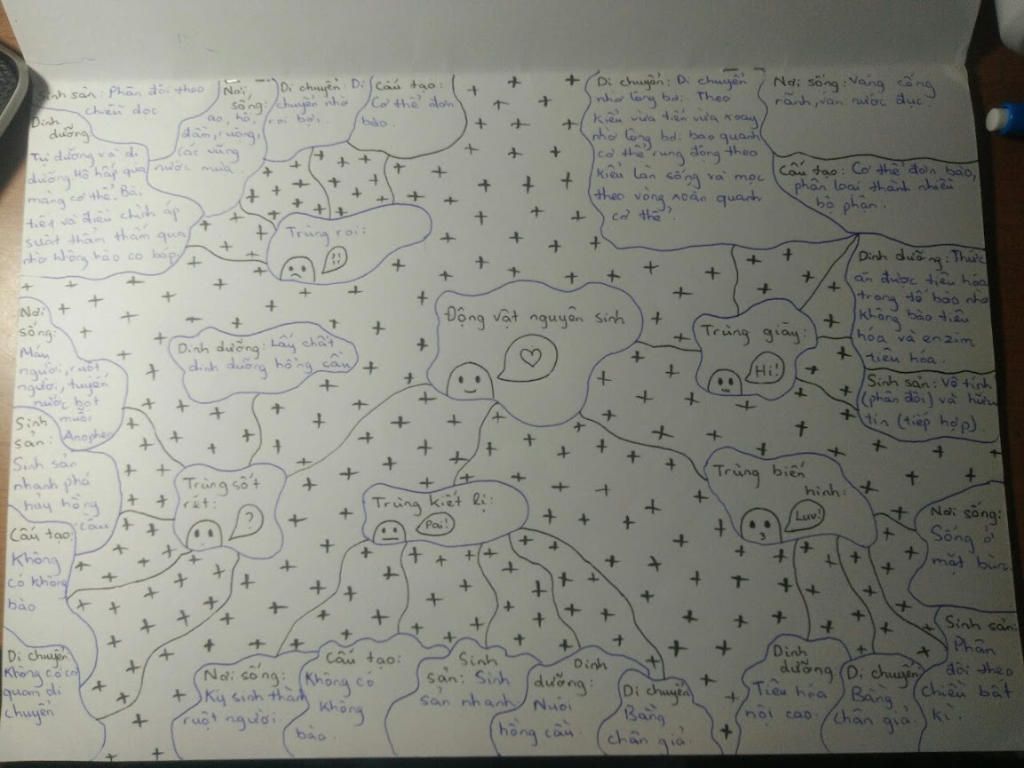 Sinh sản: Phân đôi theo
chiều dọc
Nơi
sống:
ao, hồ,
đầm, ruộng,
các vũng
nước mưa.
Di chuyển: Di
chuyển nhờ
roi bơi.
Cấu tạo:
Cơ thể đơn
bào.
Dinh
dưỡng
Tự dưỡng và dị
dưỡng Hô hấp qua
màng cơ thể. Bài
tiết và điều chỉnh áp
suất thẩm thấu qua
nhờ không bào co bóp
Trùng roi:
!!
Di chuyển: Di chuyển
nhờ lông bơi. Theo
kiểu vừa tiến vừa xoay
nhờ lông bơi bao quanh
cơ thể rung động theo
kiểu làn sóng và mọc
theo vòng xoắn quanh
cơ thể.
Nơi sống: Váng cống
rãnh, ván nước đục.
Cấu tạo: Cơ thể đơn bào,
phân loại thành nhiều
bộ phận.
Dinh dưỡng: Thức
ăn được tiêu hóa
trong tế bào nhờ
không bào tiêu
hóa và enzim
tiêu hóa.
Sinh sản: Vô tính
(phân đôi) và hữu
tín (tiếp hợp).
Trùng giày:
Hi!
Động vật nguyên sinh
Dinh dưỡng: Lấy chất
dinh dưỡng hồng cầu
Nơi
sống:
Máu
người, ruột
người, tuyến
nước bọt
muỗi
Anophen
Sinh
sản:
Sinh sản
nhanh phá
hủy hồng
cầu
Cấu tạo:
Không
có không
bào
Di chuyển
Không có cơ
quan di
chuyển
Trùng sốt
rét:
?
Trùng kiết lị:
Pai!
Trùng biến
hình:
Luv!
Nơi sống:
Sống ở
mặt bùn
Sinh sản:
Phân
đôi theo
chiều bất
kì.
Nơi sống:
Ký sinh thành
ruột người.
Cấu tạo:
Không có
không
bào.
Sinh
sản: Sinh
sản nhanh
Dinh
dưỡng:
Nuốt
hồng cầu
Di chuyển
Bằng
chân giả.
Dinh
dưỡng
Tiêu hóa
nội cao.
Di chuyển:
Bằng
chân giả.